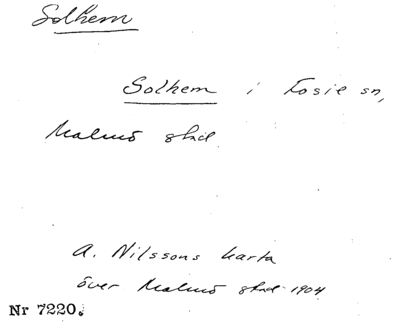 Solhem
Solhem i Fosie sn,
Malmö stad.
A. Nilssons karta
över Malmö stad 1904
Nr 7220.